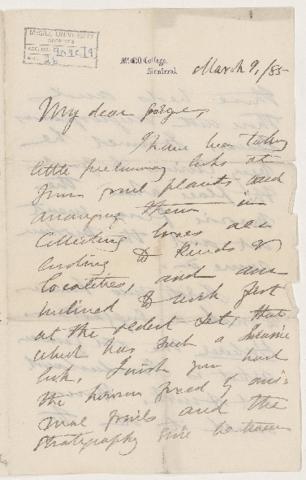 McGILL UNIVERSITY
ARCHIVES
ACC. NO.
REF.
McGill College,
Montreal
March 9, /85
My dear George,
I have been taking
little preliminary looks at
your plants and
arranging them in
collecting boxes
according to kinds &
localities, and am
inclined to work first
at the oldest set, that
which has such a
look, I wish you had
the horizon fixed by ani-
mal fossils and the
stratigraphy